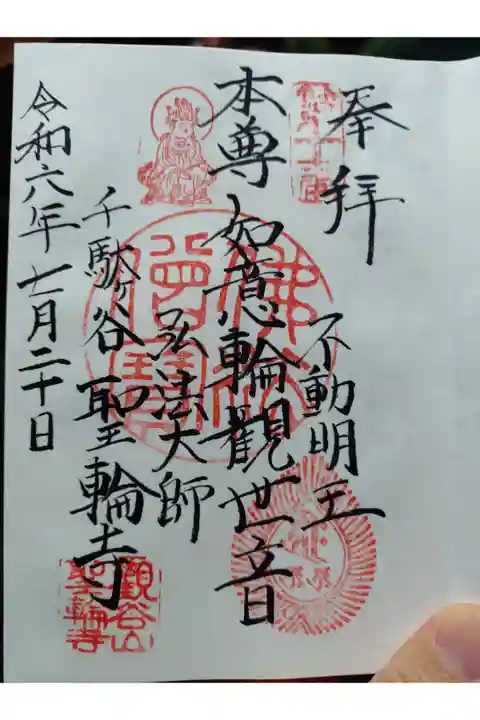 奉拝
不動明王
本尊 如意輪観世音
弘法大師
千駄ヶ谷 聖輪寺
令和六年七月二十日
佛法僧寶
観谷山
聖輪寺